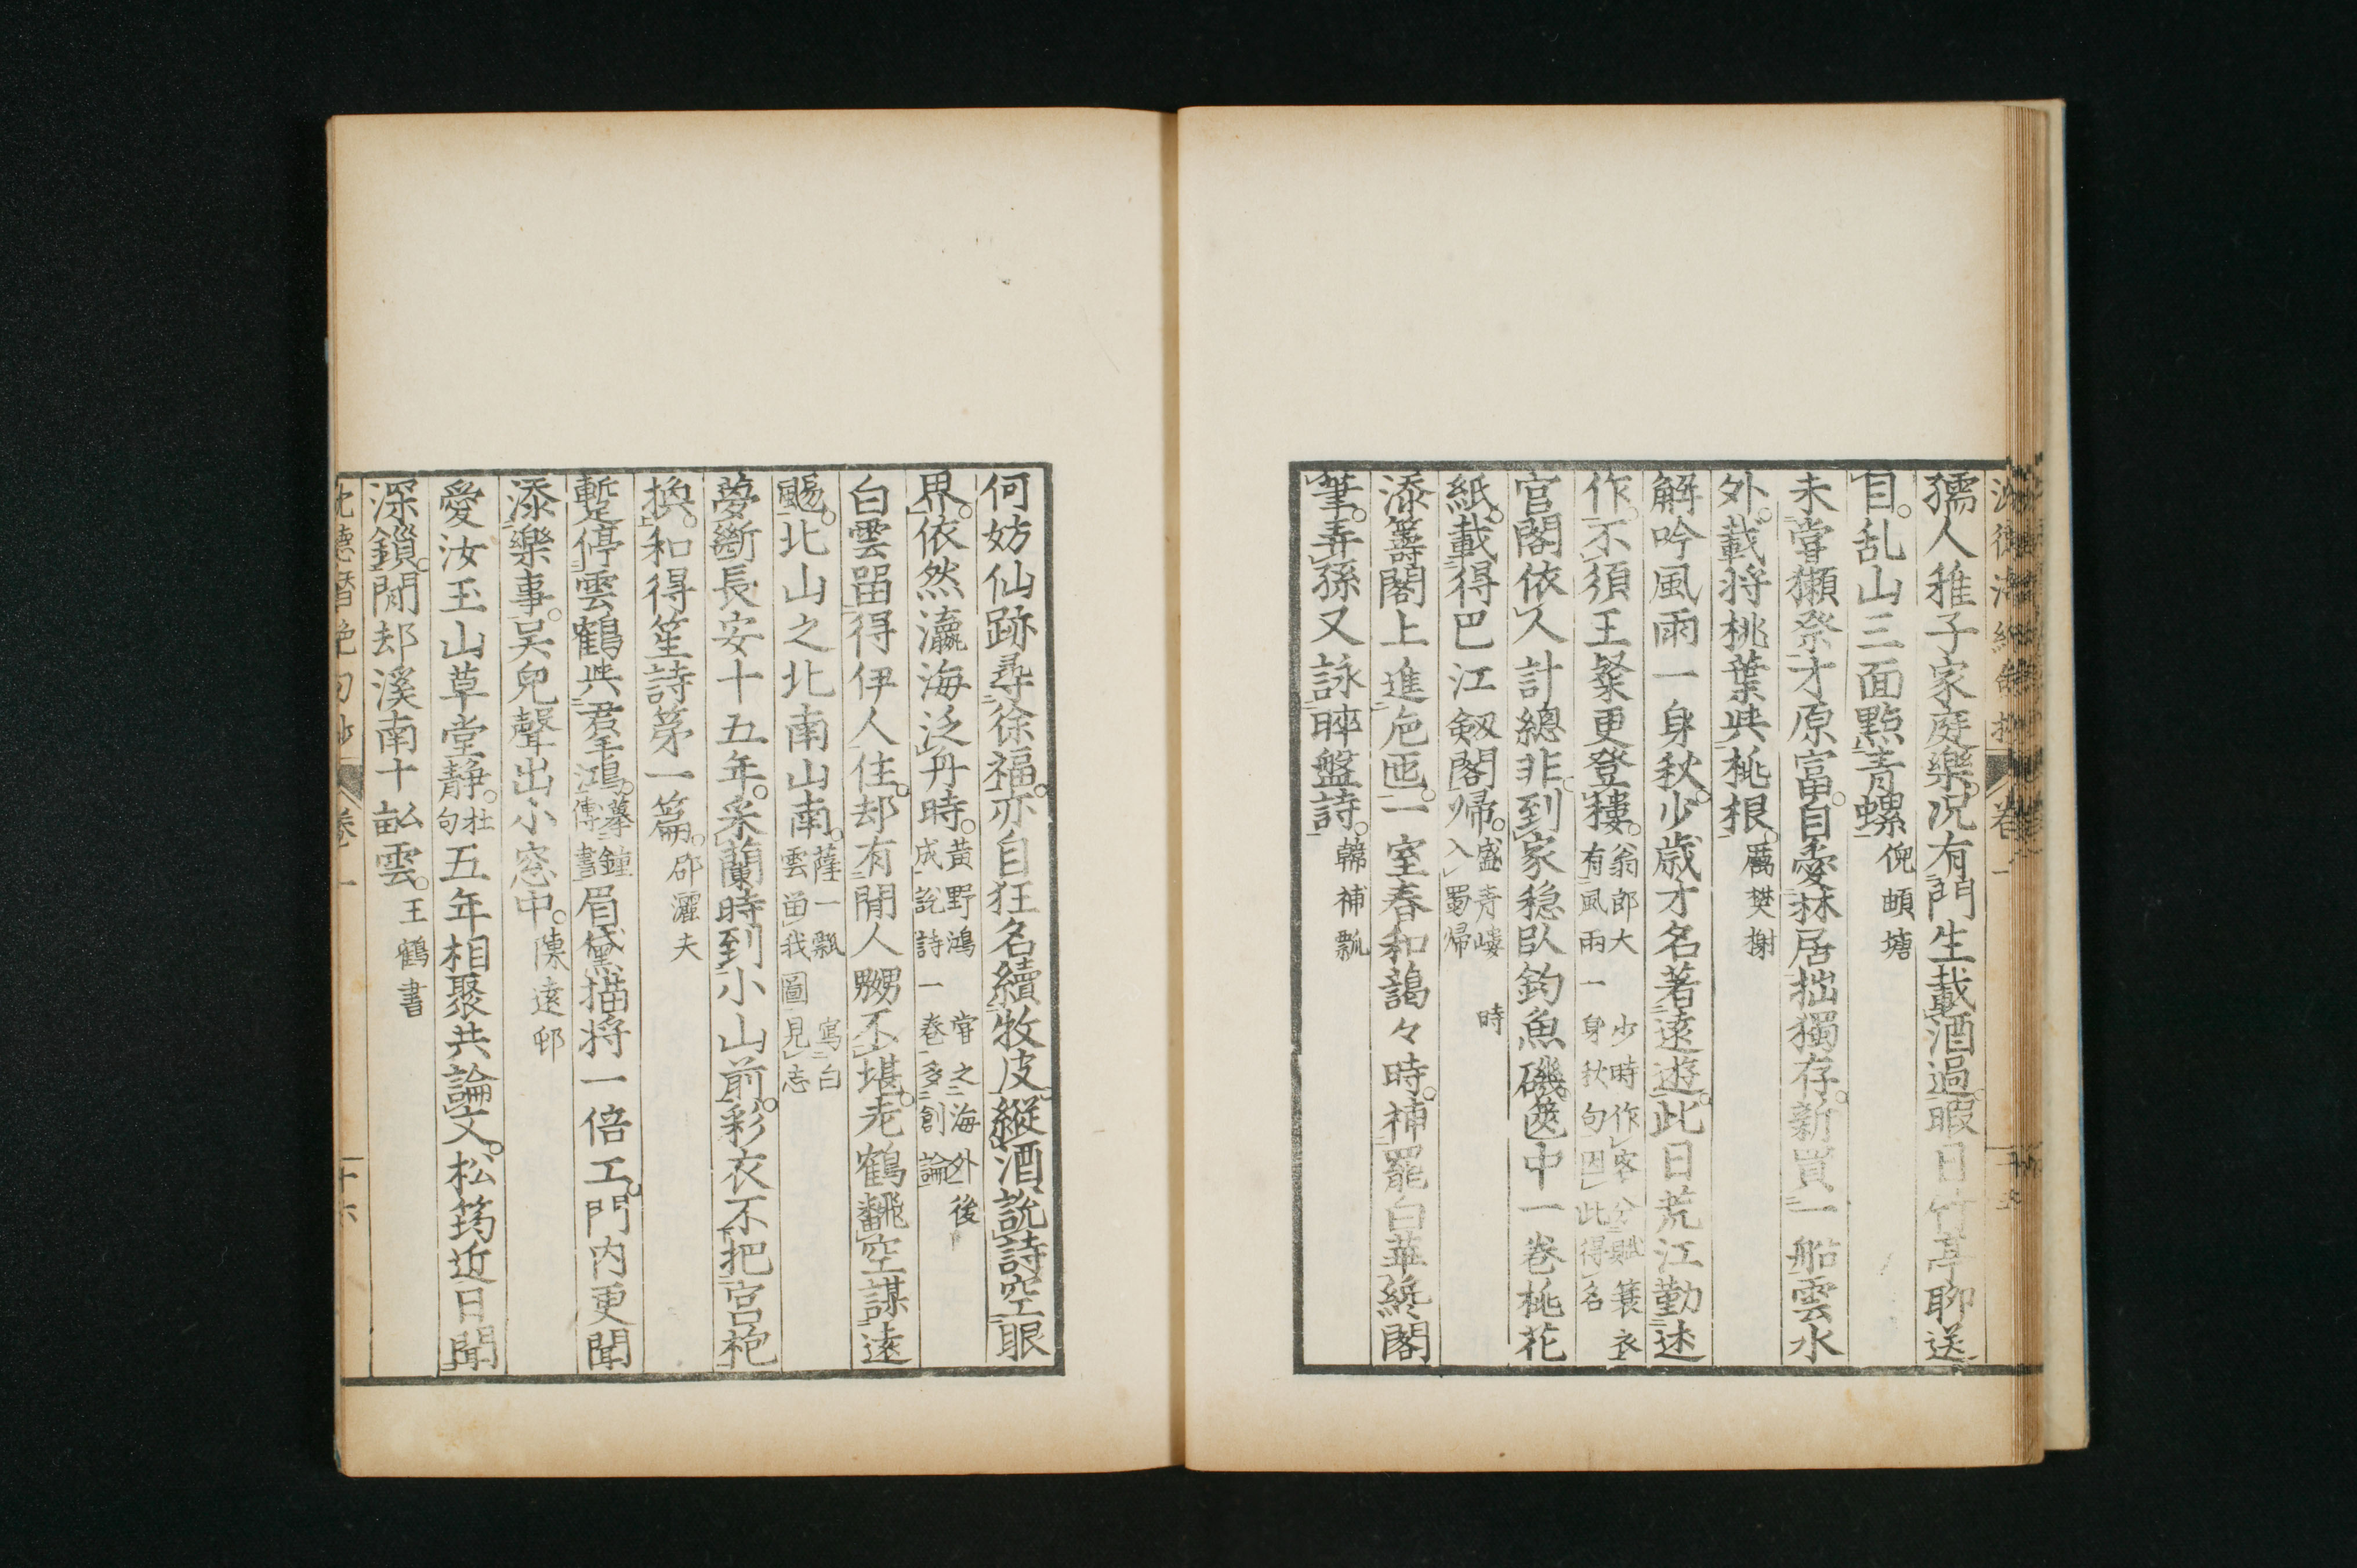 孺人稚子家庭樂。况有門生載酒過。暇日竹亭聊送
目。乱山三面點青螺 倪㠉塘
未嘗獺祭才原富。自愛林居拙獨存。新買一船雲水
外。載将桃葉與桃根。厲樊榭
解吟風雨一身秋。少歳才名著遠遊。此日荒江勤述
作。不須王粲更登樓。翁郎大少時作客分賦蓑衣
有風雨一身秋句因此得名
官閣依人計總非。到家穏臥釣魚磯。篋中一卷桃花
紙。載得巴江剱閣帰。盛青嶁時
入蜀帰
添籌閣上進卮匜。一室春和藹々時。補罷白華終閣
筆。弄孫又詠晬盤詩。韓補瓢
何妨仙跡尋徐福。亦自狂名續牧皮。縱酒説詩空眼
界。依然瀛海泛舟時。黄野鴻嘗之海外後
成説詩一卷多創論
白雲畱得伊人住。却有閒人嬲不堪。老鶴飜空謀遠
颺。北山之北南山南。薩一瓢寫白
雲畱我圖見志
夢斷長安十五年。采蘭時到小山前。彩衣不把宮袍
換。和得笙詩第一篇。邵灑夫
暫停雲鶴與君羣鴻。摹鐘
傳書眉黛描将一倍工。門内更聞
添樂事。吴兒聲出小窓中。陳遠邨
愛汝玉山草堂靜。杜
句五年相聚共論文。松筠近日聞
深鎖。閒却溪南十畝雲。王鶴書
沈德潜絶句抄 卷一 十六